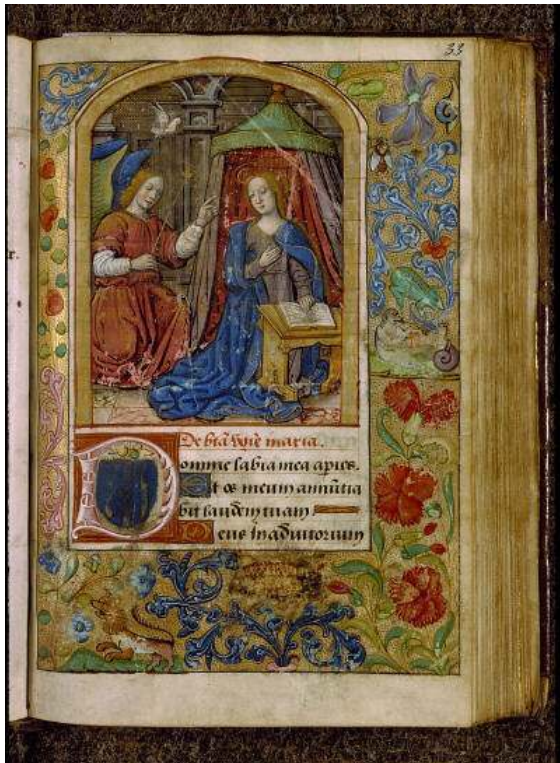 33
r.
De bt̃a v̾gĩe maria.
Domine labia mea aperies.
Et os meum annũtia
bit laudẽm tuam
Deus in adiutorium